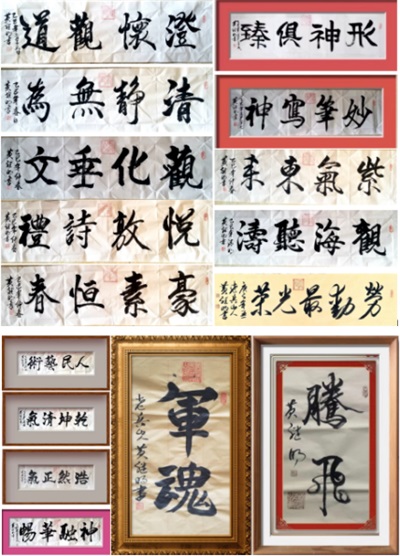 澄懷觀道
清靜無為
觀化垂文
悅敦詩禮
豪素恒春
形神俱臻
妙筆寫神
紫氣東來
觀海聽濤
勞動最光榮
人民藝術
乾坤清氣
浩然正氣
神融筆暢
軍魂
騰飛